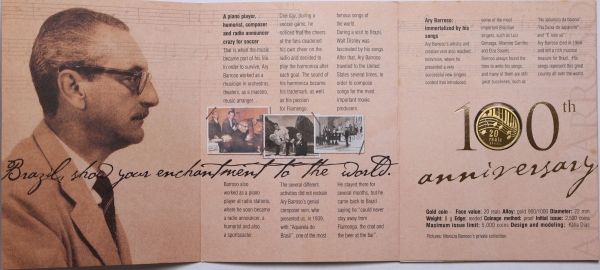 A piano player,
humorist, composer
and radio announcer
crazy for soccer
That is what the music
became part of his life.
In order to survive, Ary
Barroso worked as a
musician in orchestras,
theaters, as a maestro,
music arranger...
One day, during a
soccer game, he
noticed that the cheers
of the fans drowned
his own cheer on the
radio and decided to
play the harmonica after
each goal. The sound of
his harmonica became
his trademark, as well
as his passion
for Flamengo.
famous songs of
the world.
During a visit to Brazil,
Walt Disney was
fascinated by his songs.
After that, Ary Barroso
traveled to the United
States several times, in
order to compose
songs for the most
important movie
producers.
Brazil, show your enchantment to the world.
Barroso also
worked as a piano
player at radio stations,
where he soon became
a radio announcer, a
humorist and also
a sportscaster.
The several different
activities did not restrain
Ary Barroso's genial
composer vein, who
presented us, in 1939,
with "Aquarela do
Brasil", one of the most
He stayed there for
several months, but he
came back to Brazil
saying he "could never
stay away from
Flamengo, the chat and
the beer at the bar".
Ary Barroso:
immortalized by his
songs
Ary Barroso's artistic and
creative vein also reached
television, where he
presented a very
successful new singers
contest that introduced
some of the most
important Brazilian
singers, such as Luiz
Gonzaga,
and Elza Soares.
Barroso always found the
time to write his songs,
and many of them are still
great successes, such as
Ary Barroso died in 1964
and left a rich musical
treasure for Brazil. His
songs represent this great
country all over the world.
100th
20
reais
anniversary
Gold coin - Face value: 20 reais Alloy: gold 900/1000 Diameter: 22 mm
Weight: 8 g Edge: reeded Coinage method: proof Initial issue: 2,500
Maximum issue limit: 5,000 coins Design and modeling: Kátia Dias
Pictures: Mariúza Barroso's private collection.